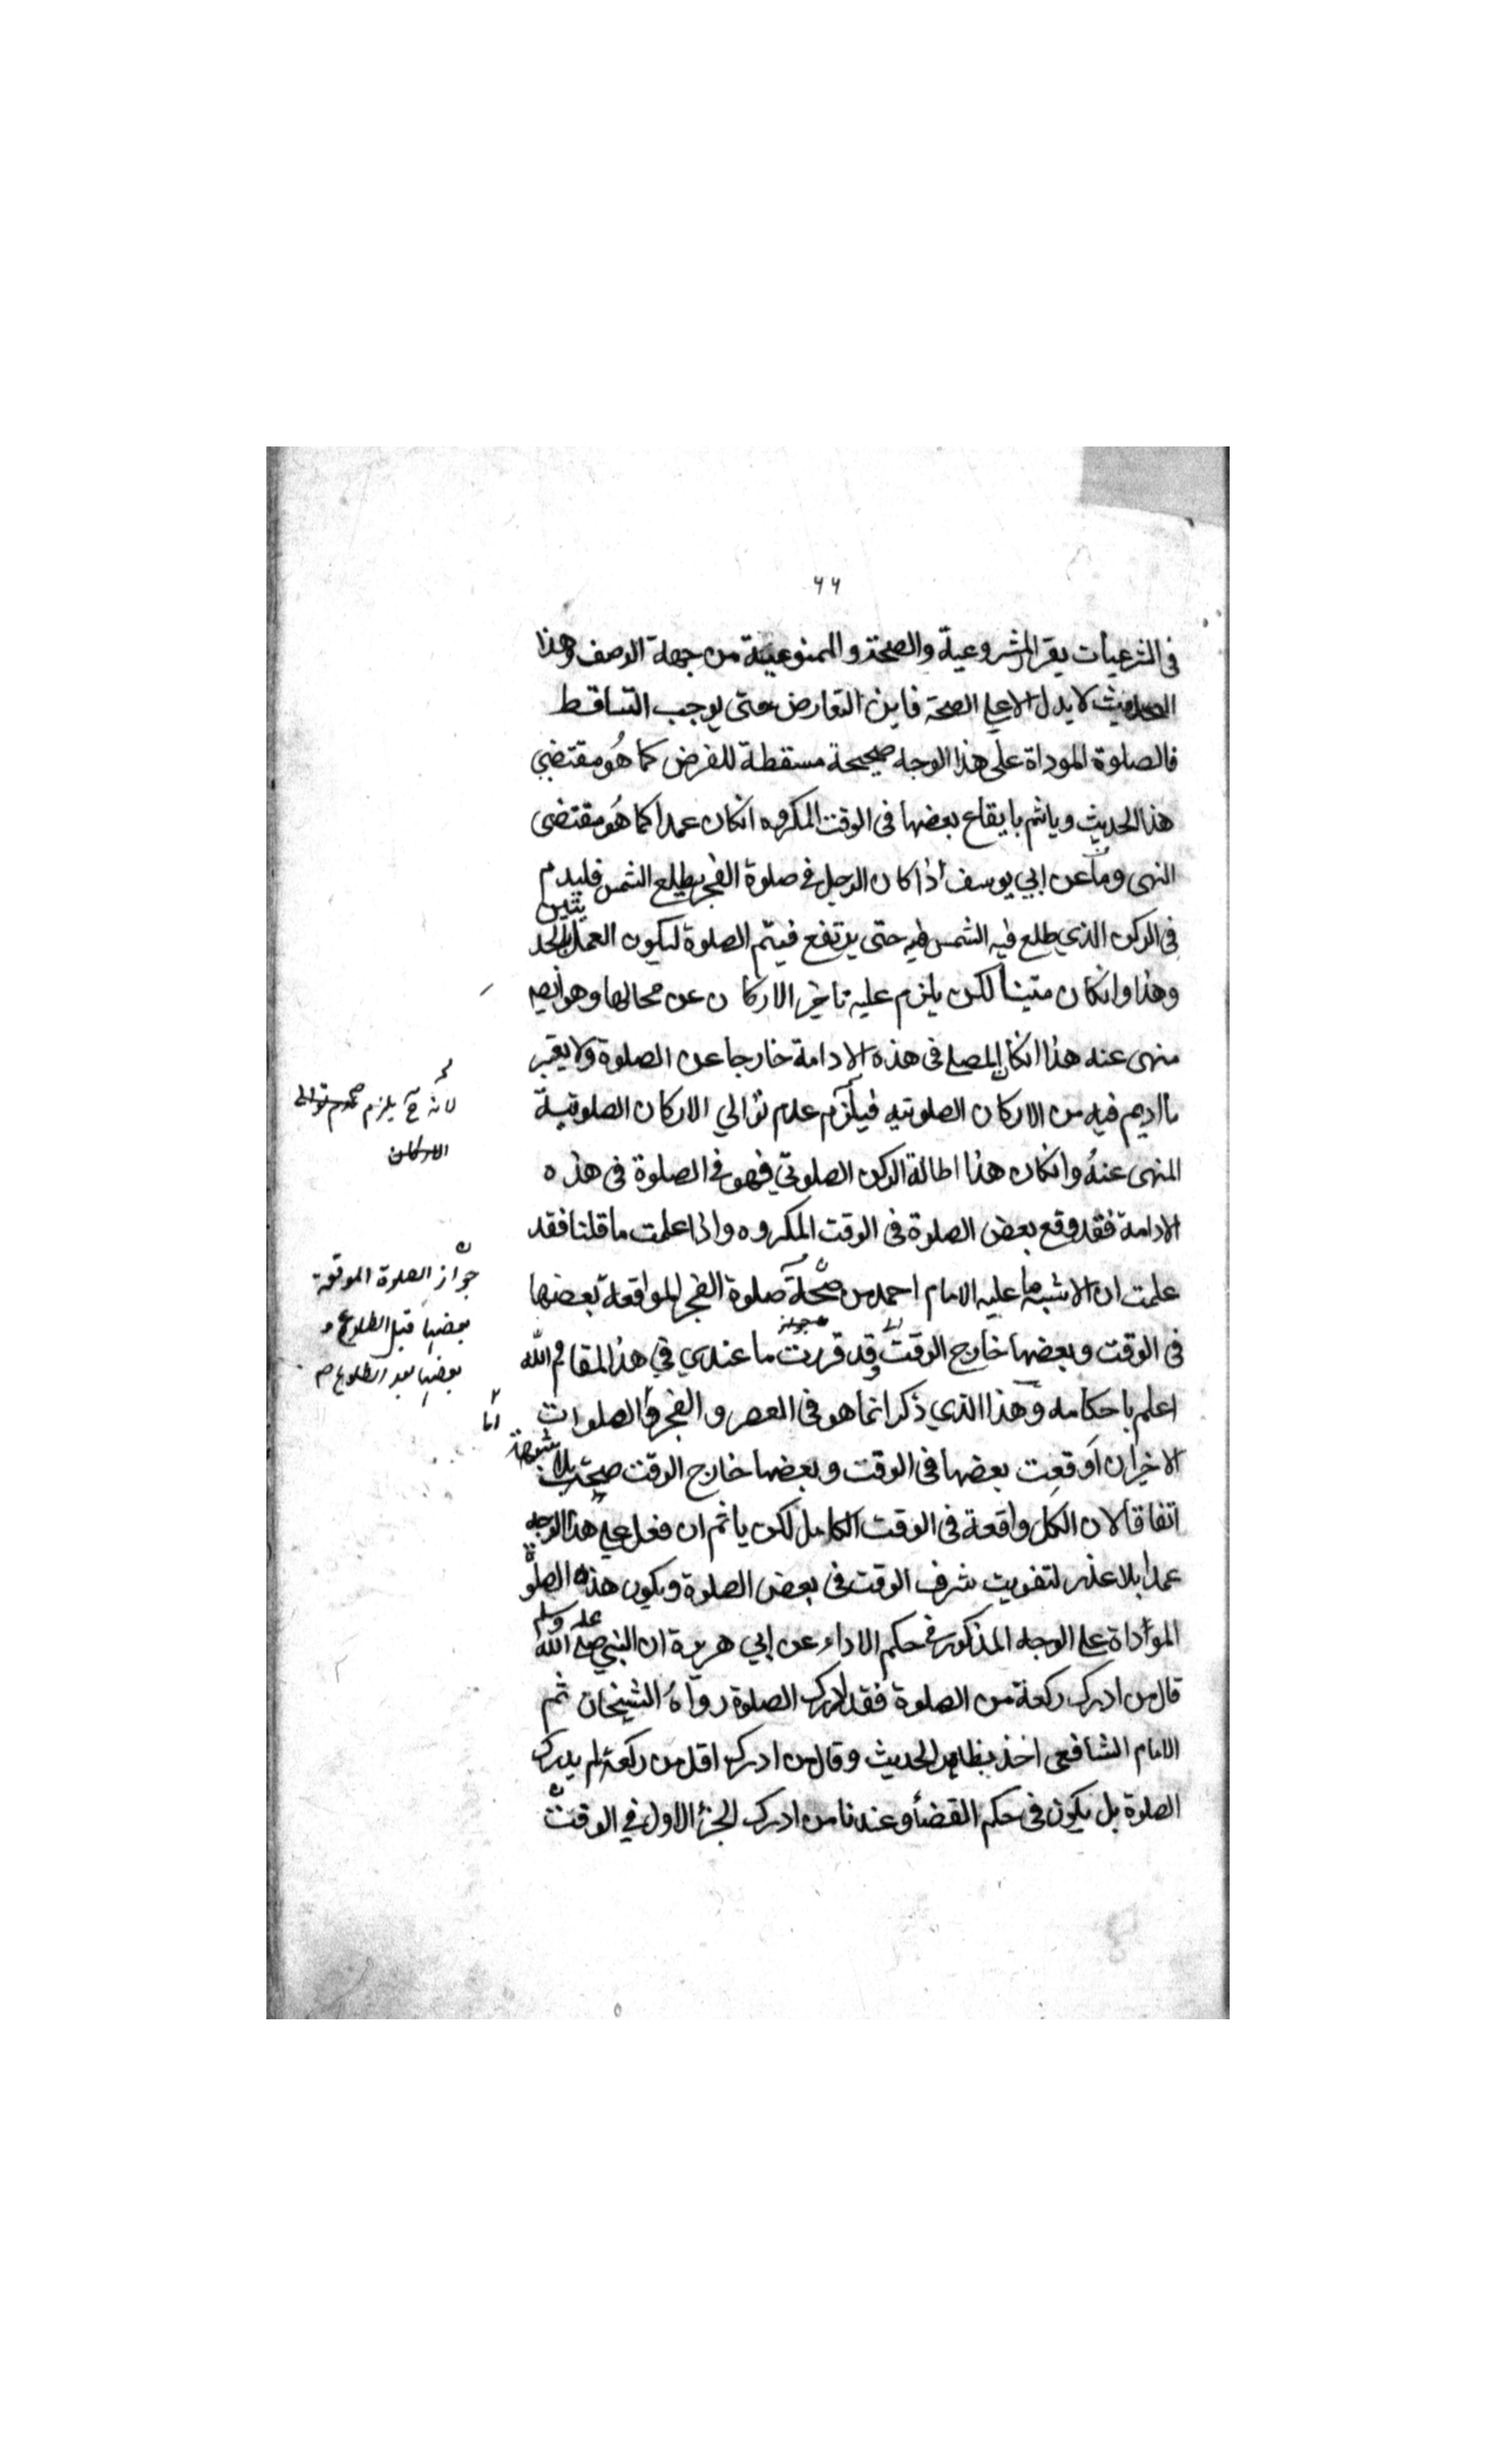 ٦٦
فى الشرعيات يقرر المشروعية والصحة والممنوعية من جهة الوصف وهذا
الحديث لا يدل الا على الصحة فاين التعارض حتى يوجب التساقط
فالصلوة الموداة على هذا الوجه صحيحة مسقطة للفرض كما هُو مقتضى
هذا الحديث وياثم بايقاع بعضها فى الوقت المكروه انكان عمدا كما هُو مقتضى
النهى وما عن ابي يوسف اذا كان الرجل فى صلوة الفجر يطلع الشمس فليدم
فى الركن الذي طلع فيه الشمس فيه حتى يرتفع فيتم الصلوة ليكون العمل بالحديثين
وهذا وانكان متينا لكن يلزم عليه تاخير الاركان عن محالها وهو ايضا
منهى عنه هذا انكان المصلى فى هذه الادامة خارجا عن الصلوة ولا يعتبر
ما اديم فيه من الاركان الصلوتيه فيلزم عدم توالي الاركان الصلوتية
المنهى عنهُ وانكان هذا اطالة الركن الصلوتي فهو فى الصلوة فى هذه
الادامة فقد وقع بعض الصلوة فى الوقت المكروه واذا علمت ما قلنا فقد
علمت ان الاشبه ما عليه الامام احمد من صحّة صلوة الفجر الواقعة بعضها
فى الوقت وبعضها خارج الوقت وقد قررت ما عندي في هذا المقام والله
اعلم باحكامه وهذا الذي ذكر انما هو فى العصر والفجر واما الصلوات
الاخر ان اوقعت بعضها فى الوقت وبعضها خارج الوقت صحت بلا شبهة
اتفاقا لان الكل واقعة فى الوقت الكامل لكن ياثم ان فعل على هذا الوجه
عمدا بلا عذر لتفويت شرف الوقت فى بعض الصلوة ويكون هذه الصلوة
المواداة على الوجه المذكور فى حكم الاداء عن ابي هريرة ان النبي صلى الله عليه وسلم
قال من ادرك ركعة من الصلوة فقد ادرك الصلوة رواهُ الشيخان ثم
الامام الشافعى اخذ بظاهر الحديث وقال من ادرك اقل من ركعة لم يدرك
الصلوة بل يكون فى حكم القضأ وعندنا من ادرك الجزأ الاول في الوقت
لانه ح يلزم عدم توالى
الاركان
جواز الصلوة الموقعة
بعضها قبل الطلوع و
بعضها بعد الطلوع
اما